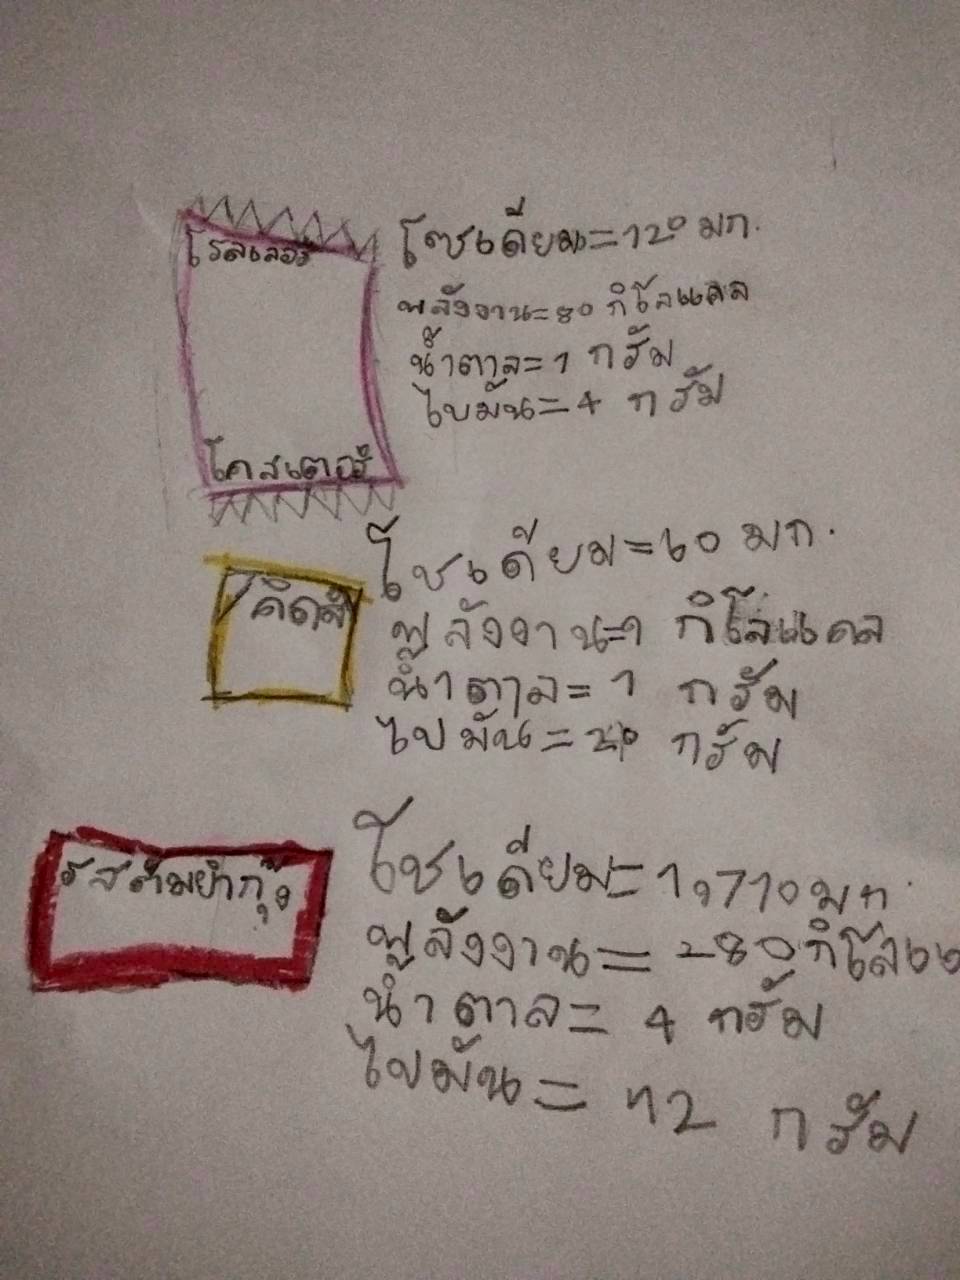 โรลเลอร์
โคสเตอร์
โซเดียม=120 มก.
พลังงาน=80 กิโลแคล
น้ำตาล=1 กรัม
ไขมัน=4 กรัม
โซเดียม=60 มก.
พลังงาน=1 กิโลแคล
น้ำตาล=1 กรัม
ไขมัน= กรัม
รสต้มยำกุ้ง
โซเดียม=1,710 มก.
พลังงาน=280 กิโลแ
น้ำตาล=4 กรัม
ไขมัน=12 กรัม